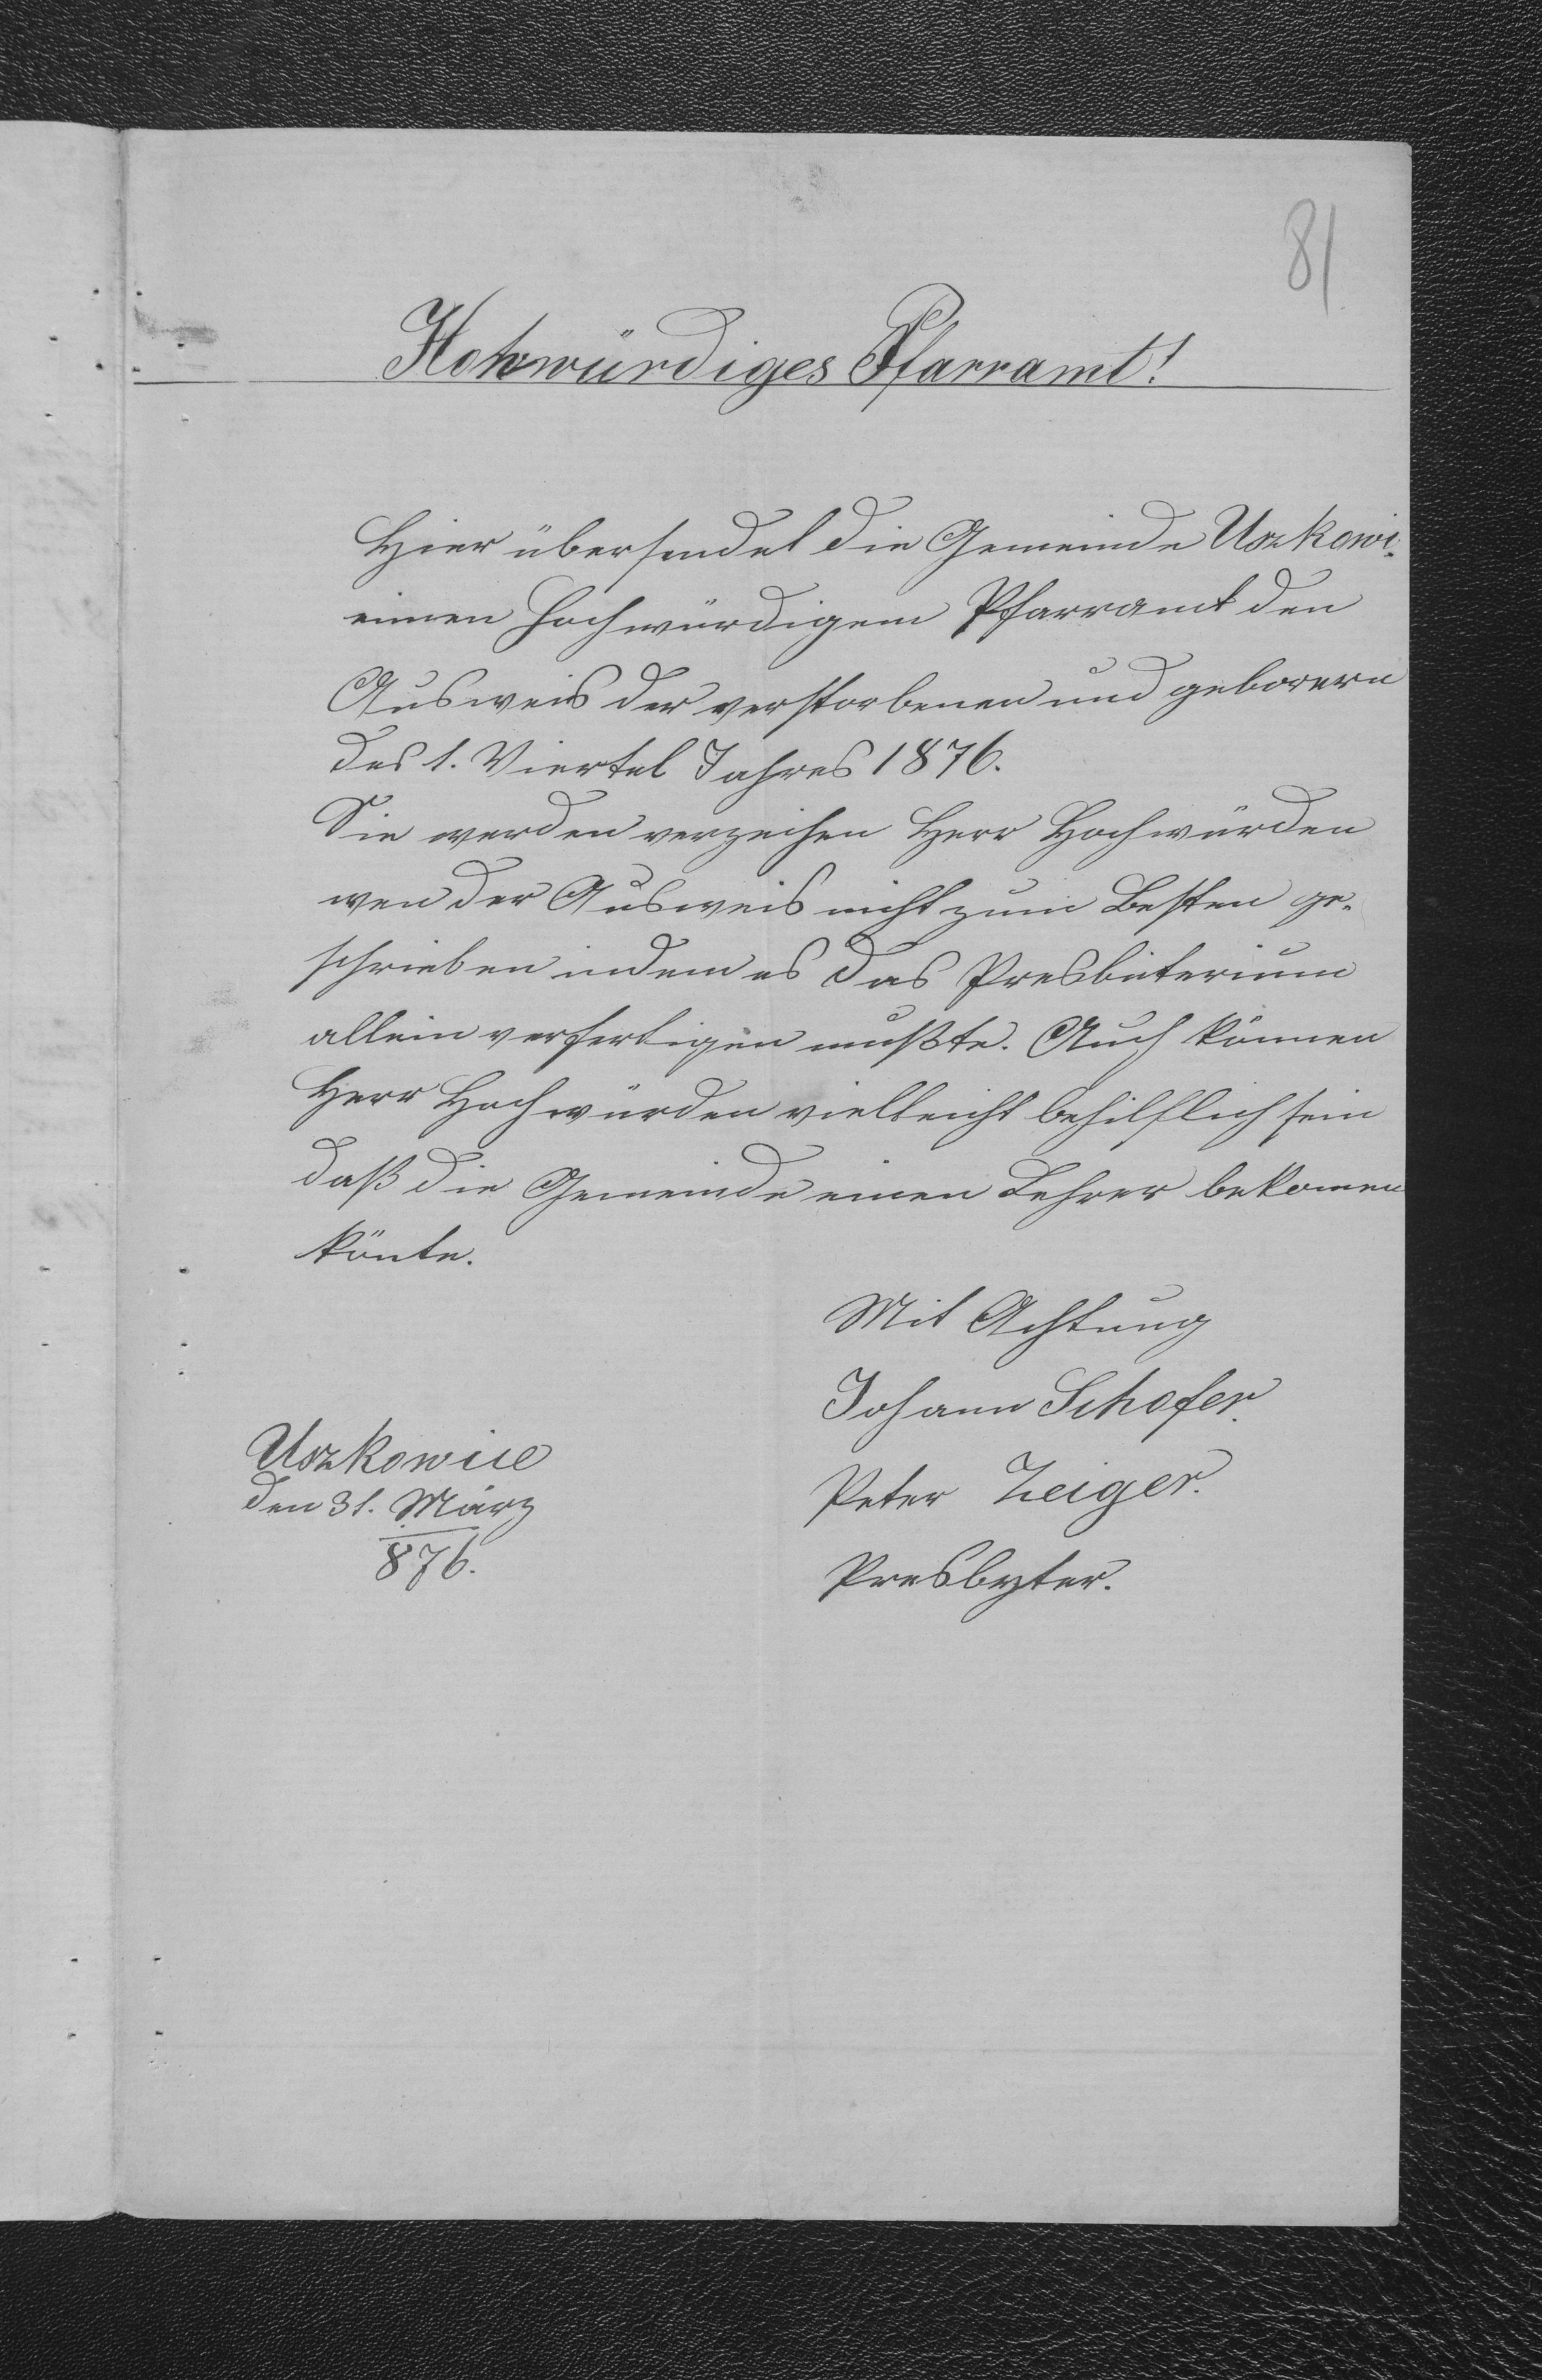 81
Hohwürdiges Pfarramt!
Hier übersendet die Gemeinde Uszkowi¬
einen Hochwürdigem Pfarramt den
Ausweis der verstorbenen und geborern
des 1. Viertel Jahres 1876.
Sie werden verzeihen Herr Hochwürden
wen der Ausweis nicht zum Besten ge¬
schrieben indem es das Presbüterium
allein verfertigen mußte. Auch können
Herr Hochwürden vielleicht behilflich sein
daß die Gemeinde einen Lehrer bekomen
könte.
Mit Achtung
Johann Schofer.
Uszkowice
den 31. März
876.
Peter Zeiger.
Presbyter.